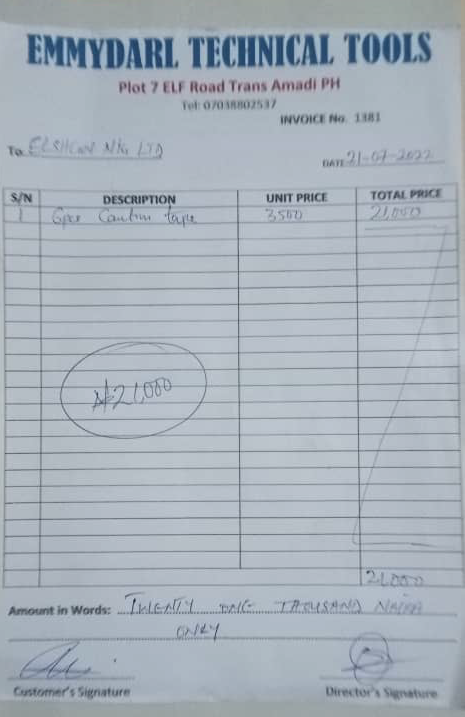 EMMYDARL TECHNICAL TOOLS
Plot 7 ELF Road Trans Amadi PH
Tel: 07038802537
INVOICE No. 1381
To ELSHCON NIG LTD
DATE 21-07-2022
S/N DESCRIPTION UNIT PRICE TOTAL PRICE
1 6pcs Caution tape 3500 21,000
₦21,000
21,000
Amount in Words: TWENTY ONE THOUSAND NAIRA
ONLY
Customer's Signature Director's Signature